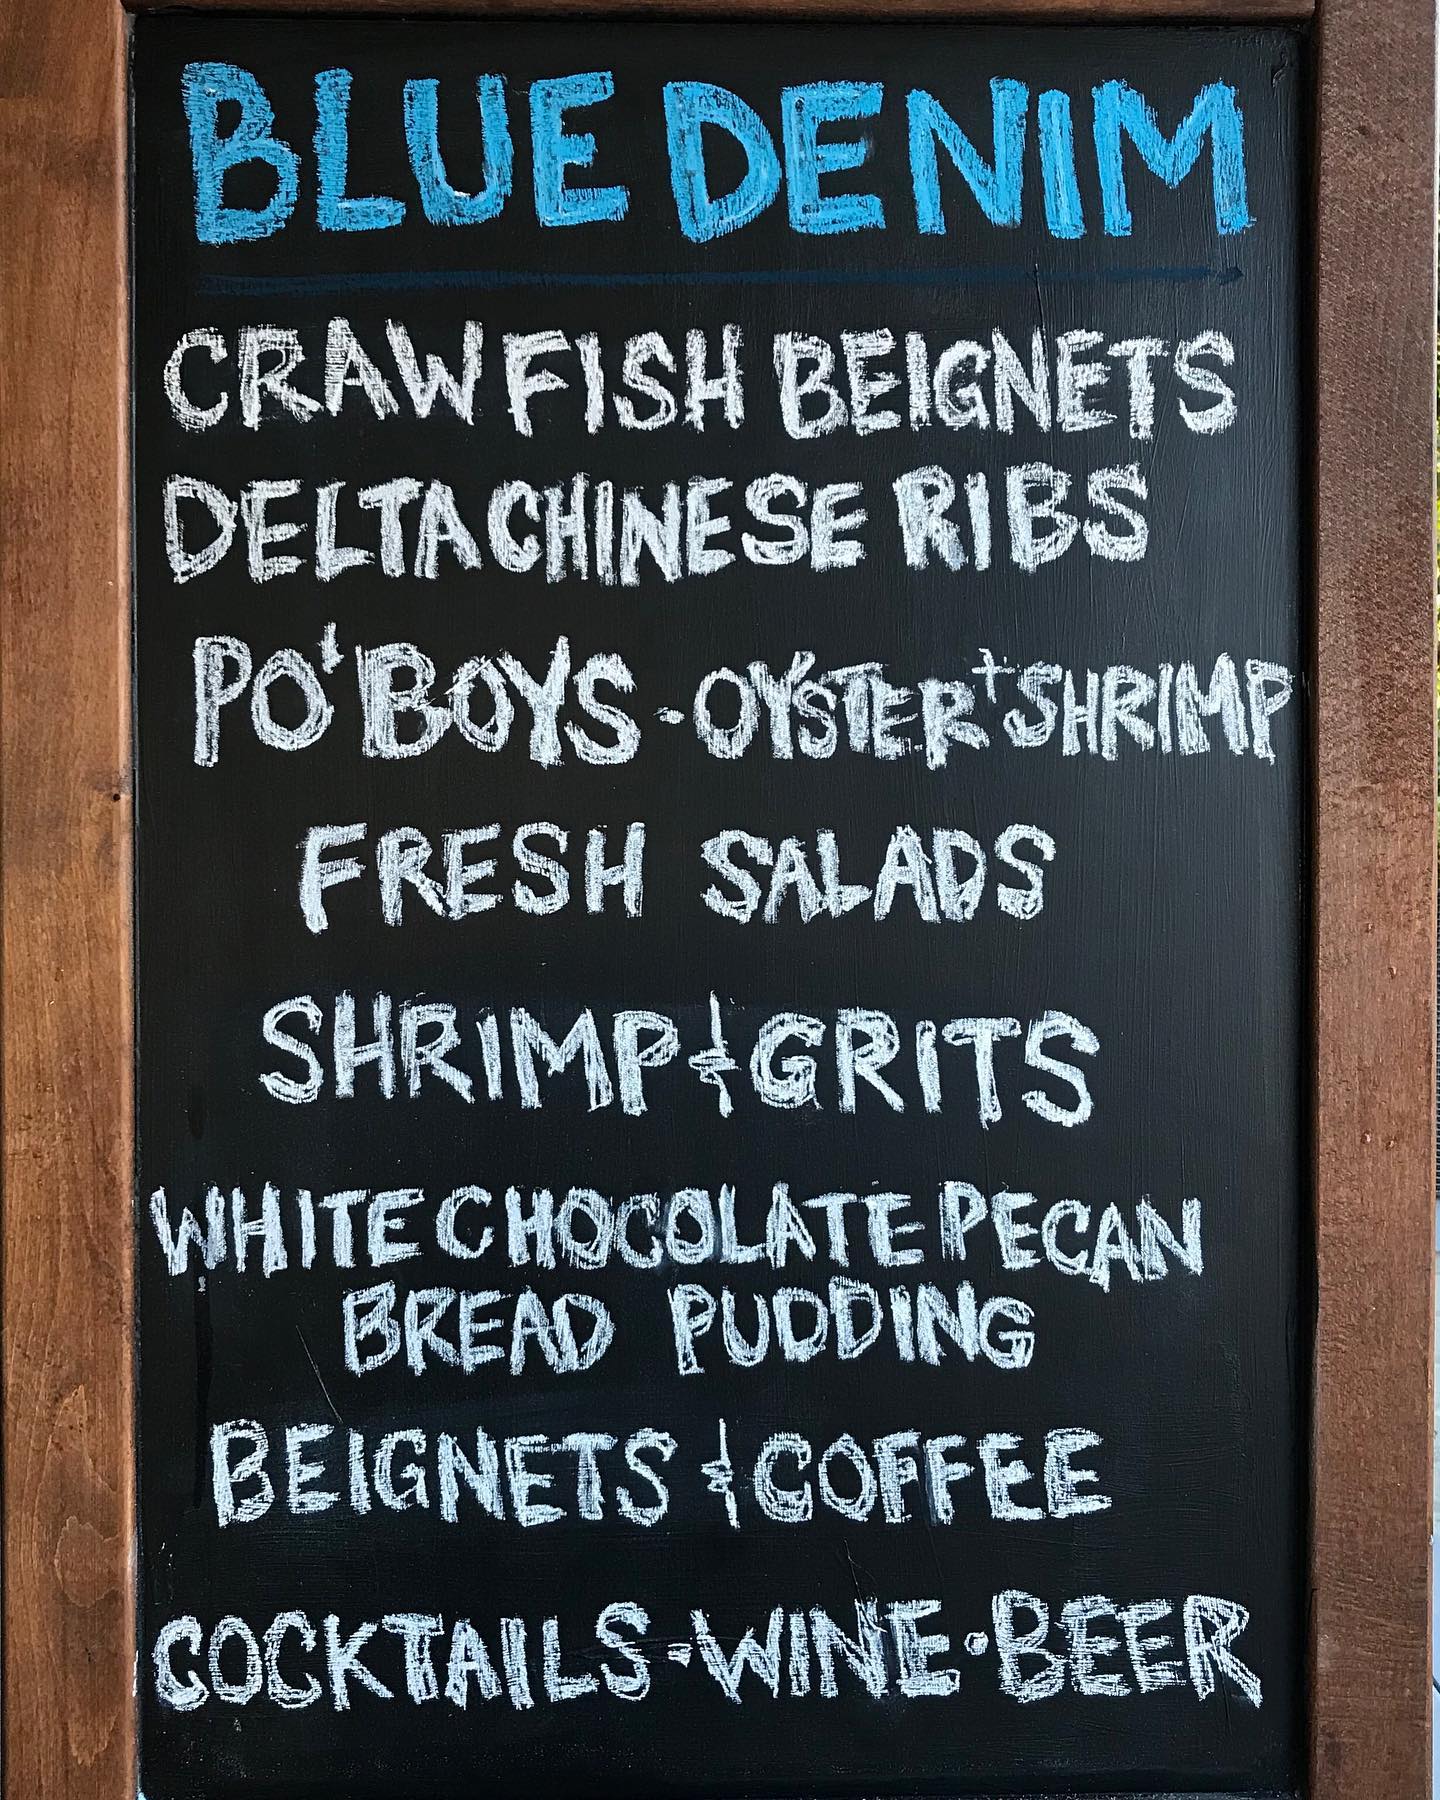 BLUE DENIM
CRAWFISH BEIGNETS
DELTA CHINESE RIBS
PO' BOYS - OYSTER + SHRIMP
FRESH SALADS
SHRIMP & GRITS
WHITE CHOCOLATE PECAN
BREAD PUDDING
BEIGNETS & COFFEE
COCKTAILS • WINE • BEER